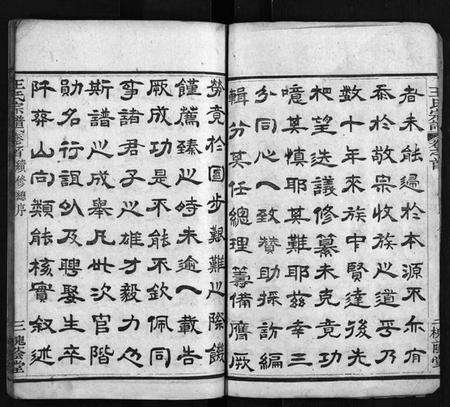 者未能遍於本源不亦有
忝於敬宗收族之道乎乃
数十年來族中賢達後先
相望迭議修纂未克竟功
噫其慎耶其難耶茲幸三
分同心一致贊助採訪編
輯分其任總理籌備膺厥
勞竟於國步艱難之際饑
饉薦臻之時未逾一載告
厥成功是不能不欽佩同
事諸君子之雄才毅力也
斯譜之成舉凡世次官階
勛名行誼以及聘娶生卒
阡葬山向類能核實叙述
王氏宗譜 卷首 續修總序
三 槐蔭堂